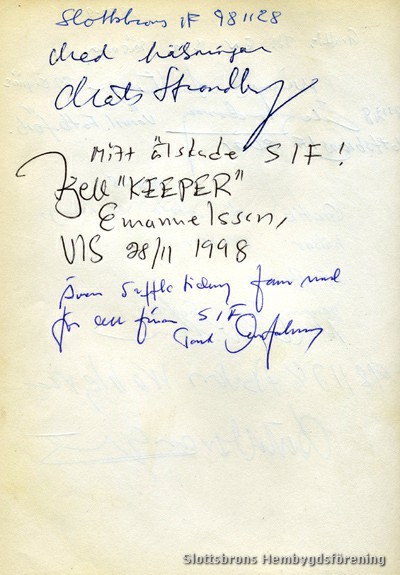 Slottsbrons IF 981128
Med hälsningar
Mats Strandberg
Mitt älskade SIF!
Kjell "KEEPER"
Emanuelsson,
VIS 28/11 1998
Även Säffle tidning
för att fira SIF
Slottsbrons Hembygdsförening